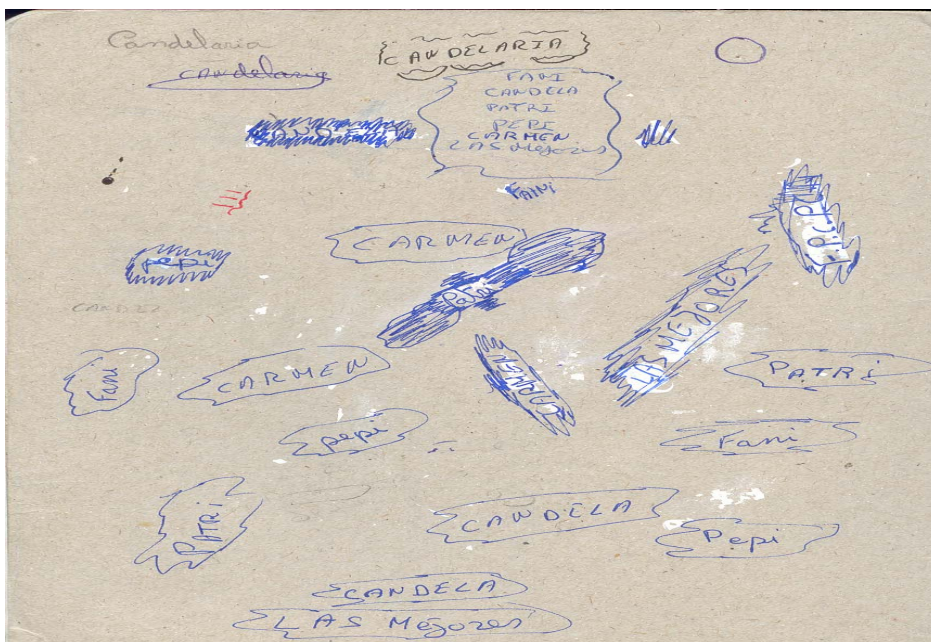 Candelaria
CANDELARIA
CANdelaria
FANI
CANDELA
PATRI
PEPI
CARMEN
LAS Mejores
FANI
PEPI
CARMEN
pepi
patri
LAS MEJORES
CARMEN
Fani
CARMEN
PATRI
pepi
Fani
PATRI
CANDELA
Pepi
CANDELA
LAS Mejores